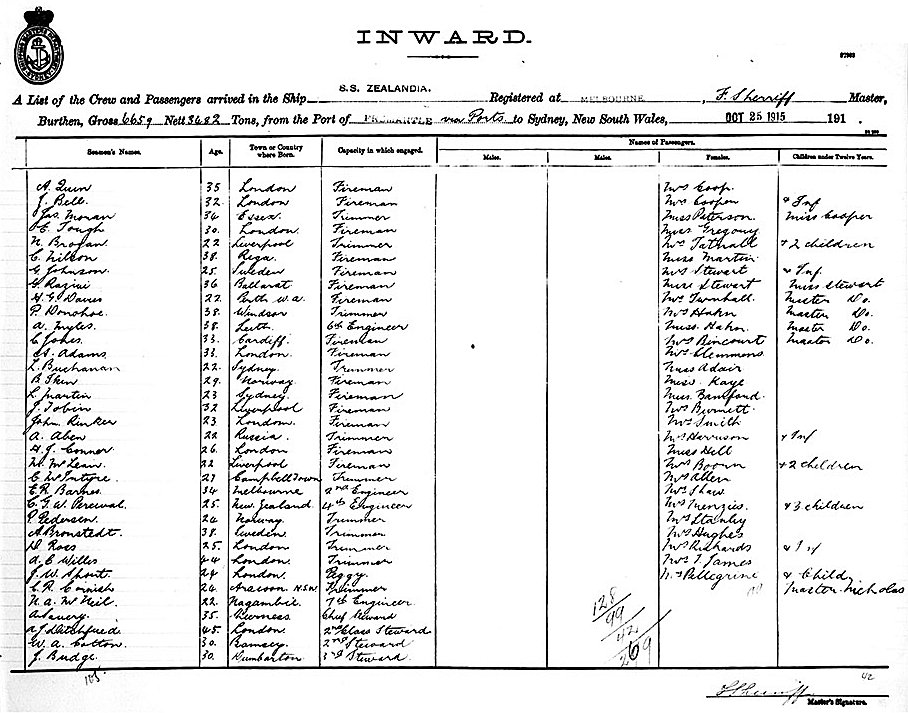 INWARD.
S.S. ZEALANDIA.
A List of the Crew and Passengers arrived in the Ship Registered at MELBOURNE, F. Sherriff Master,
Burthen, Gross 6659 Nett 3682 Tons, from the Port of FREMANTLE via Ports to Sydney, New South Wales, OCT 25 1915 191 .
Names of Passengers.
Seamen's Names. Age. Town or Country where Born. Capacity in which engaged. Males. Males. Females. Children under Twelve Years.
A. Quin 35 London Fireman Mrs Coop
J. Bell. 32 London Fireman Mrs Cooper & Inf
Jas. Moran 34 Essex. Trimmer Miss Paterson. Miss Cooper
E Tough 30. London. Fireman Miss Gregory
N. Brogan 22 Liverpool Trimmer Mrs Tatnall & 2 children
C. Nilson 38. Riga. Fireman Miss Martin
G. Johnson. 25. Sweden Fireman Mrs Stewart & Inf.
G. Razini 36 Ballarat Fireman Miss Stewart Miss Stewart
H. G. Davies 22. Perth W.A. Fireman Mrs Turnhall. Master Do.
P. Donohoe. 38. Windsor Trimmer Mrs Hahn Master Do.
A. Myles. 38. Leith 6th Engineer Miss. Hahn. Master Do.
C. Jones. 33. Cardiff. Fireman Mrs Bincourt Master Do.
Adams. 33. London. Fireman Mrs Clemmons
L. Buchanan 22. Sydney. Trimmer Miss Adair
B. 29. Norway. Fireman Miss. Kaye
L. Martin 23 Sydney. Fireman Miss. Bamford.
J. Tobin 32 Liverpool Fireman Mrs Burnett.
John Rinker 23 London. Fireman Mrs Smith
A. Aben 22 Russia. Trimmer Mrs Herruson & Inf
H. J. Conner 26. London Fireman Miss Hill
W. McLean. 22 Liverpool Fireman Mrs Boorn & 2 children
C McIntyre. 27 Campbelltown Trimmer Mrs Allen
E. R. Barnes. 34 Melbourne 2nd Engineer Mrs Shaw
C. G. W. Percival. 25. New Zealand. 4th Engineer Mrs Menzies. & 3 children
P. Pedersen. 24 Norway. Trimmer Mrs Stanley
A. Bronstedt. 38. Sweden. Trimmer Mrs Hughes
D. Ross 25. London Trimmer Mrs Richards & Inf
A. E Willis 44 London. Trimmer Mrs T. James
J. W. Short. 24 London. Peggy Mrs Pellegrine & Child
C. R. Cornish 24. Araroon N.S.W. Trimmer Master. Nicholas
N. A. McNeil. 22. Nagambie. 7th Engineer
A. Lavery. 35. Sheerness Chief Steward
A J Ditchfield 45. London. 2nd Class Steward
W. A. Cotton. 30. Ramsey. 2nd Steward
J. Budge. 30. Dumbarton 3rd Steward.
128
99
42
269
105.
42
F Sherriff
Master's Signature.